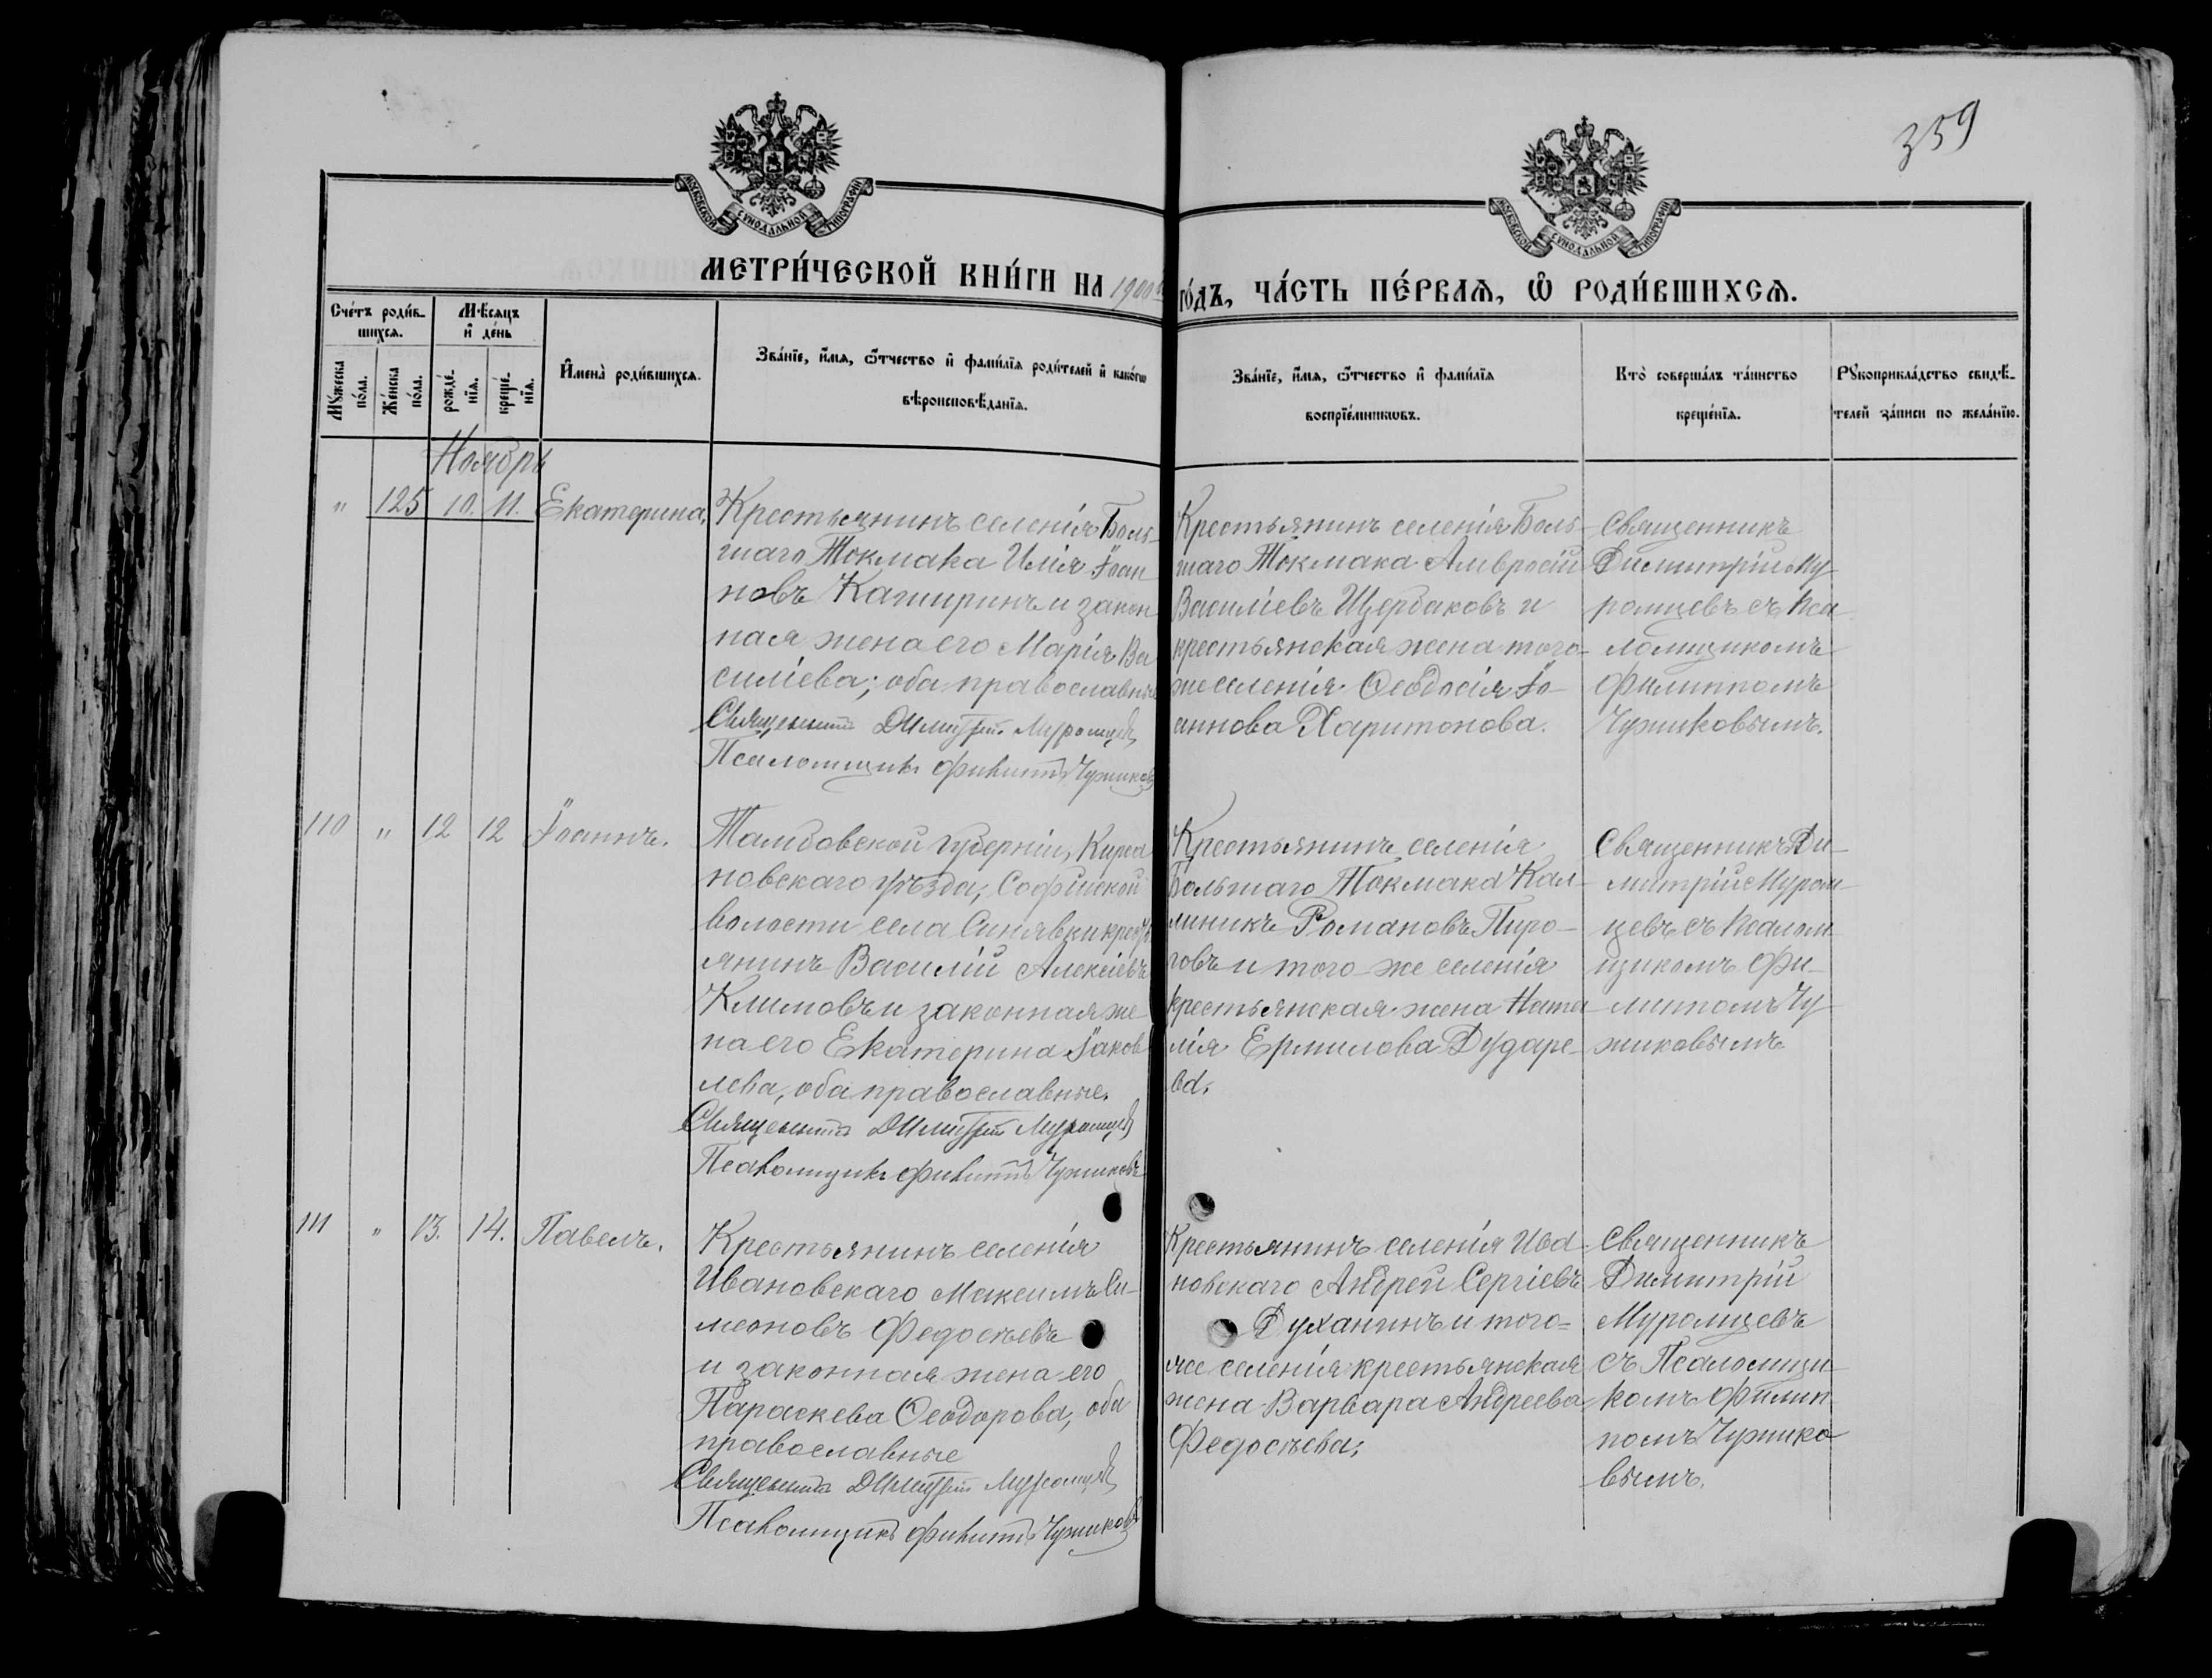 359
МОСКОВСКОЙ СѴНОДАЛЬНОЙ ТИПОГРАФІИ
МОСКОВСКОЙ СѴНОДАЛЬНОЙ ТИПОГРАФІИ
МЕТРИ́ЧЕСКОЙ КНИ́ГИ НА 1900 го́дъ, ЧА́СТЬ ПЕ́РВАѦ, Ѽ РОДИ́ВШИХСѦ.
Сче́тъ роди́в-
шихсѧ.
Мꙋ́жеска
по́ла.
Же́нска
по́ла.
Мѣ́сѧцъ
и҆ де́нь
рожде́-
нїѧ.
креще́-
нїѧ.
И҆мена̀ роди́вшихсѧ.
Зва́нїе, и҆́мѧ, ѻ҆́тчество и҆ фами́лїѧ роди́телей и҆ како́гѡ
вѣроисповѣ́данїѧ.
Зва́нїе, и҆́мѧ, ѻ҆́тчество и҆ фами́лїѧ
воспрїе́мникѡвъ.
Кто̀ соверша́лъ та́инство
креще́нїѧ.
Рꙋкоприкла́дство свидѣ́-
телей за́писи по жела́нїю.
Ноябрь
" 125 10. 11. Екатерина.
Крестьянинъ селенія Боль-
шаго Токмака Илія Іоан
новъ Каширинъ и закон
ная жена его Марія Ва
силіева; оба православные
Священникъ Димитрій Муромцевъ
Псаломщикъ Филиппъ Чужиковъ
Крестьянинъ селенія Боль-
шаго Токмака Амвросій
Василіевъ Щербаковъ и
крестьянская жена того-
же селенія Ѳеодосія Іо-
аннова Харитонова.
Священникъ
Димитрій Му-
ромцевъ съ Пса-
ломщикомъ
Филиппомъ
Чужиковымъ.
110 " 12 12 Іоаннъ.
Тамбовской губерніи, Кирса
новскаго уѣзда, Софійской
волости села Синявки кресть
янинъ Василій Алексіевъ
Климовъ и законная же
на его Екатерина Іаков
лева, оба православные.
Священникъ Димитрій Муромцевъ
Псаломщикъ Филиппъ Чужиковъ
Крестьянинъ селенія
Большаго Токмака Кал-
линикъ Романовъ Пиро-
говъ и того-же селенія
крестьянская жена Ната
лія Ермилова Дударе-
ва.
Священникъ Ди-
митрій Муром-
цевъ съ Псалом-
щикомъ Фи-
липпомъ Чу-
жиковымъ
111 " 13. 14. Павелъ.
Крестьянинъ селенія
Ивановскаго Максимъ Си-
меоновъ Федосѣевъ
и законная жена его
Параскева Ѳеодорова, оба
православные
Священникъ Димитрій Муромцевъ
Псаломщикъ Филиппъ Чужиковъ
Крестьянинъ селенія Ива-
новскаго Андрей Сергіевъ
Духанинъ и того=
же селенія крестьянская
жена Варвара Андреева
Федосѣева.
Священникъ
Димитрій
Муромцевъ
съ Псаломщи-
комъ Филип-
помъ Чужико
вымъ.